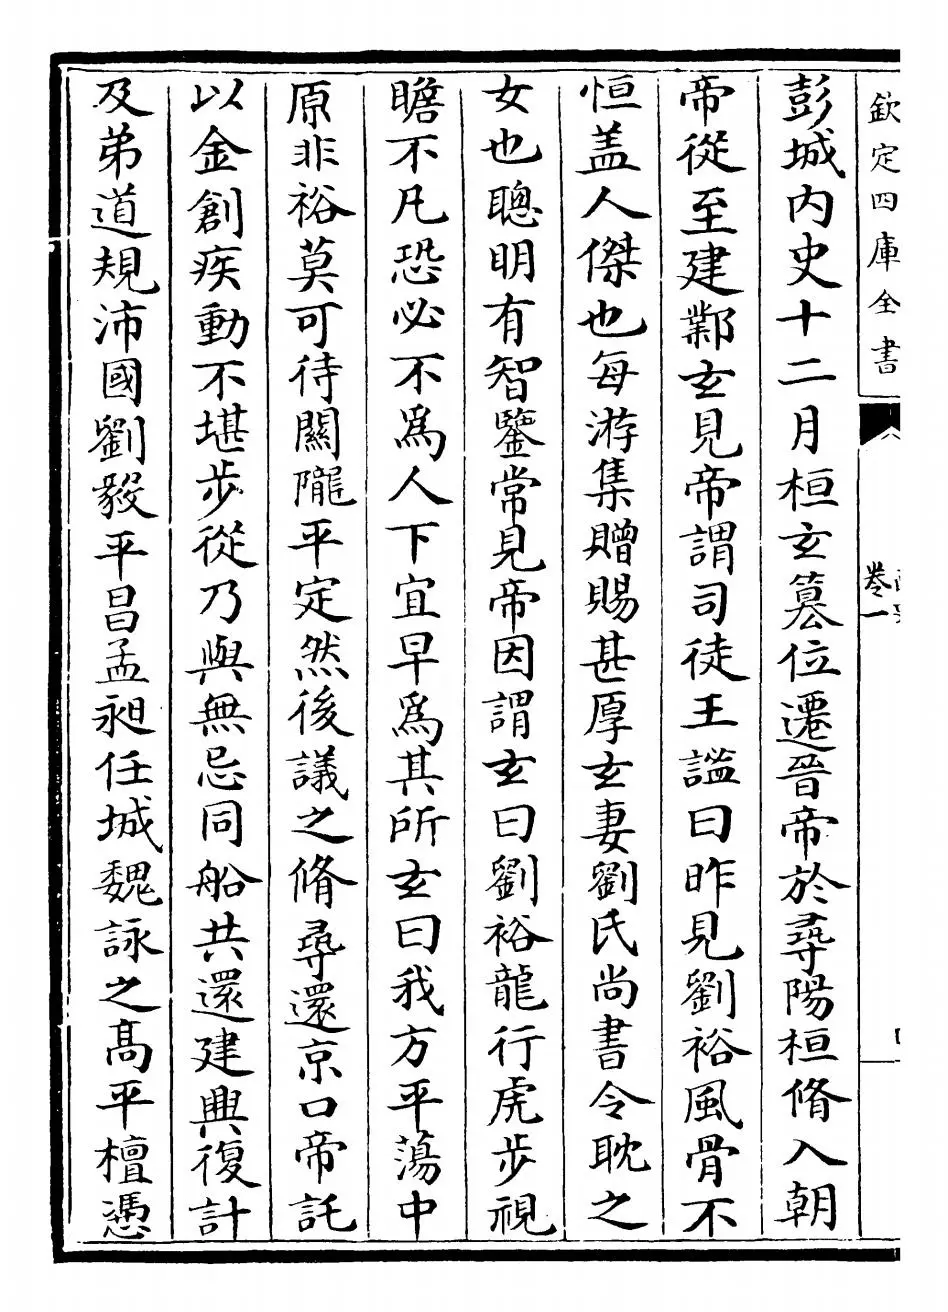 欽定四庫全書
卷一
彭城内史十二月桓玄簒位遷晉帝於尋陽桓脩入朝
帝從至建鄴玄見帝謂司徒王謐曰昨見劉裕風骨不
恒盖人傑也每游集贈賜甚厚玄妻劉氏尚書令耽之
女也聰明有智鑒常見帝因謂玄曰劉裕龍行虎步視
瞻不凡恐必不為人下宜早為其所玄曰我方平蕩中
原非裕莫可待關隴平定然後議之脩尋還京口帝託
以金創疾動不堪步從乃與無忌同船共還建興復計
及弟道規沛國劉毅平昌孟昶任城魏詠之髙平檀憑